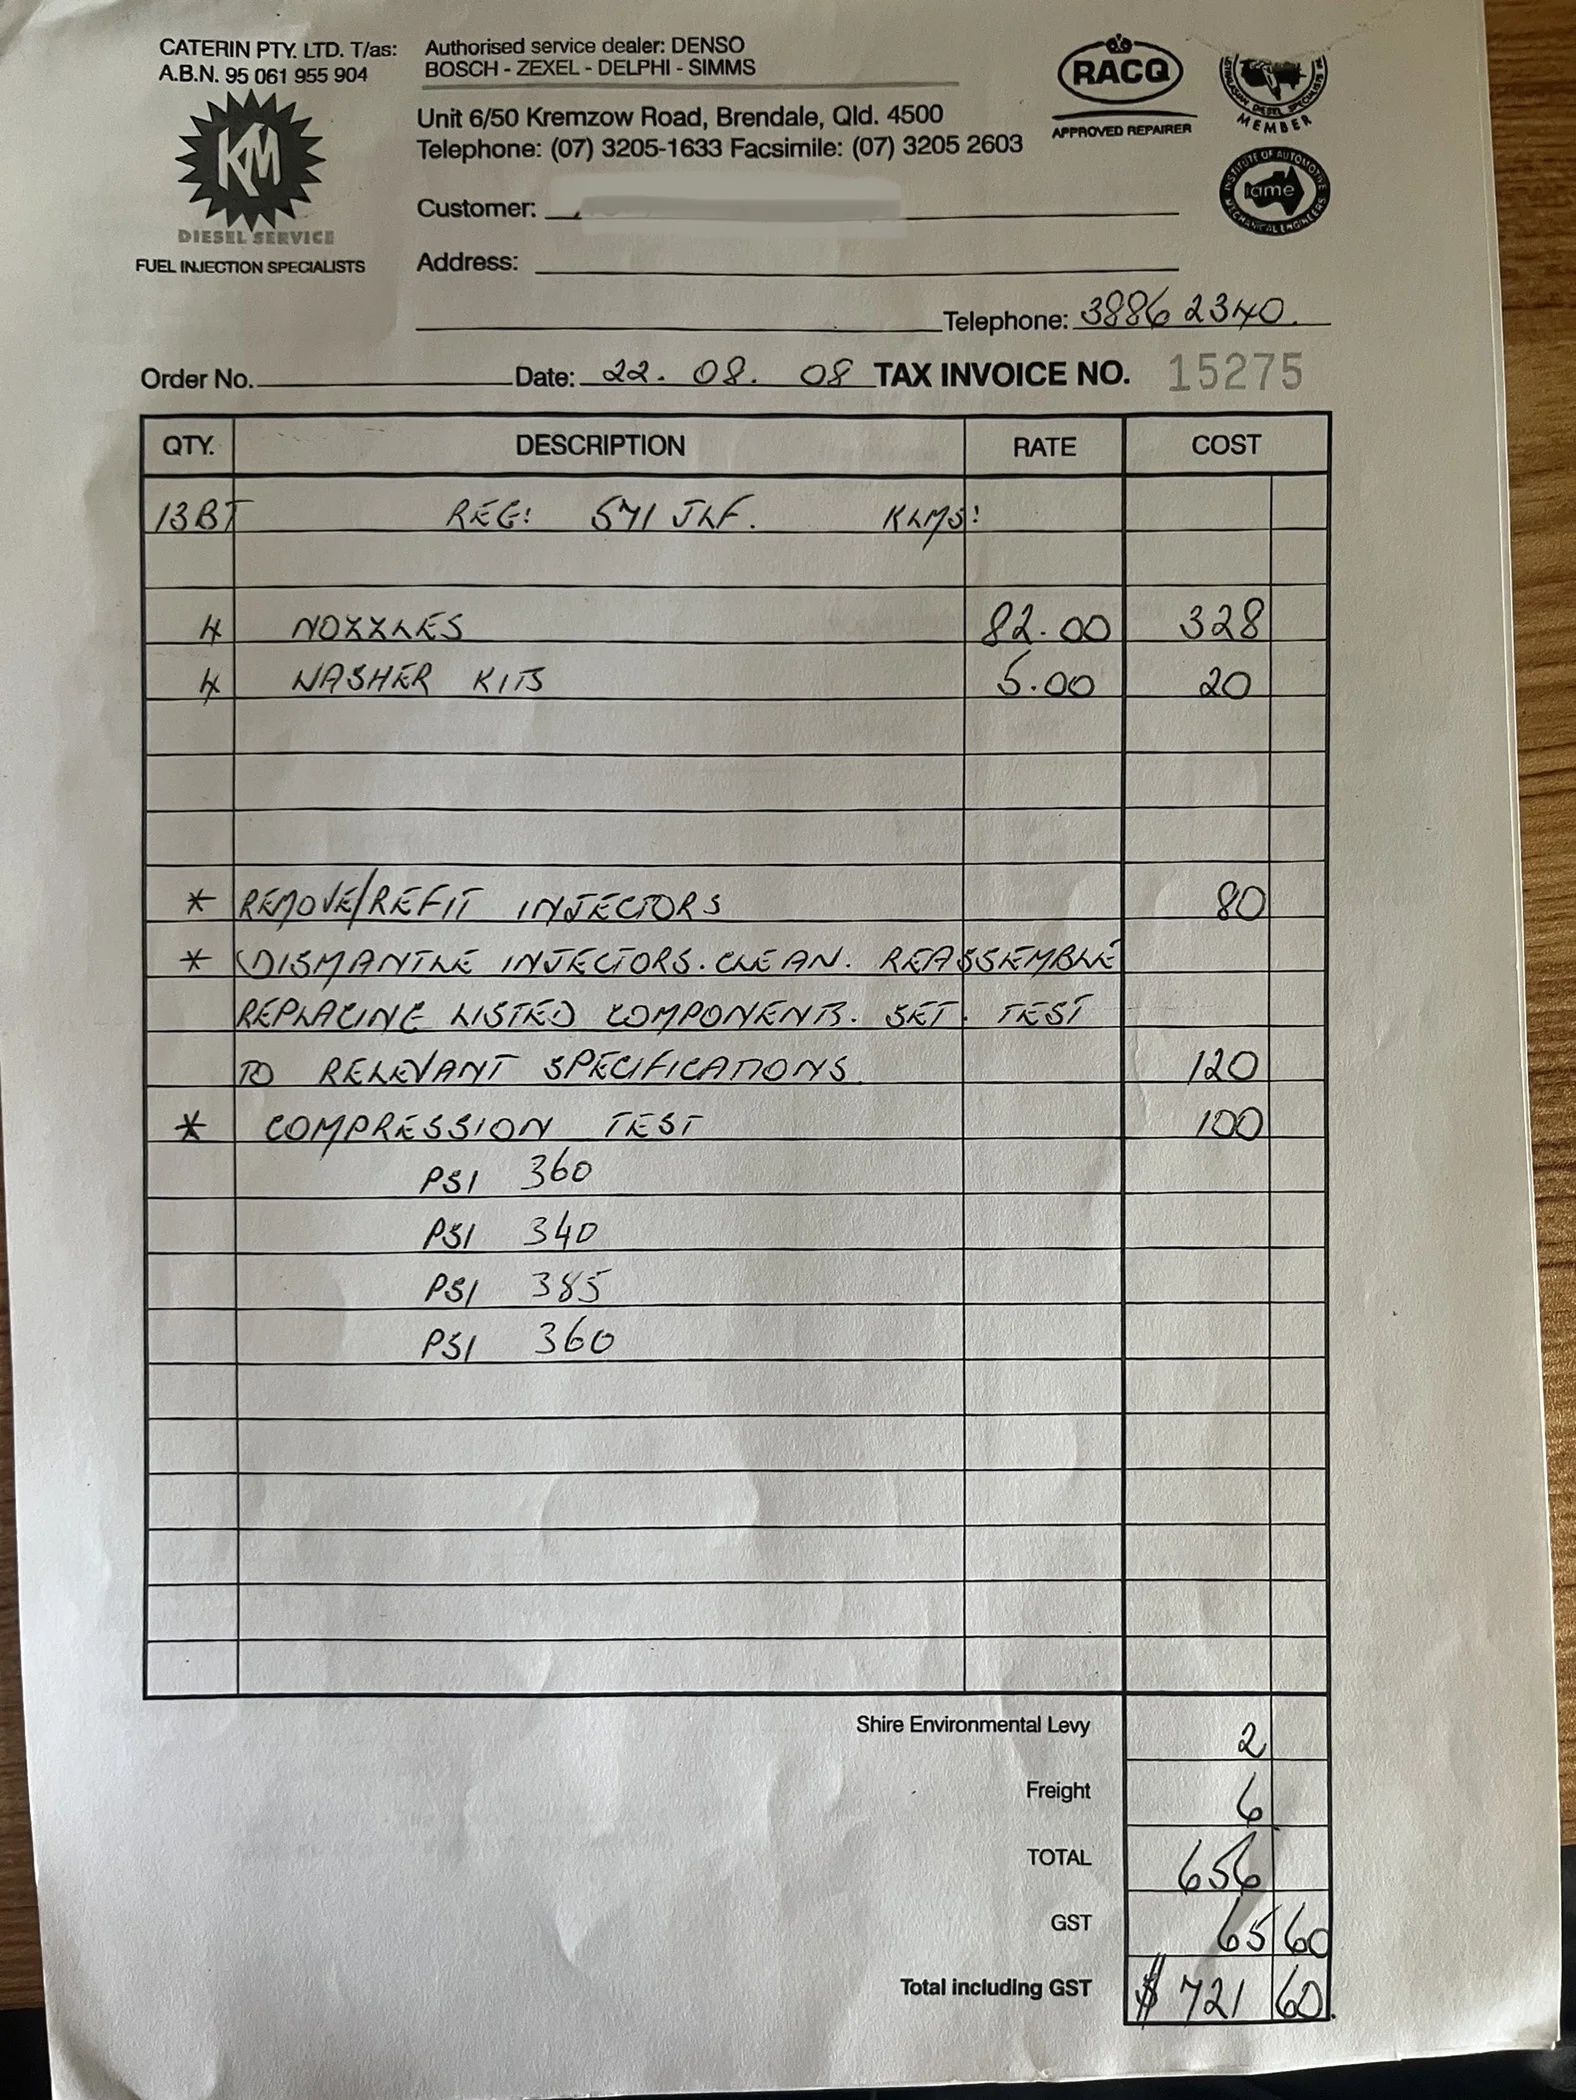 CATERIN PTY. LTD. T/as:
A.B.N. 95 061 955 904
KM
DIESEL SERVICE
FUEL INJECTION SPECIALISTS
Authorised service dealer: DENSO
BOSCH - ZEXEL - DELPHI - SIMMS
Unit 6/50 Kremzow Road, Brendale, Qld. 4500
Telephone: (07) 3205-1633 Facsimile: (07) 3205 2603
RACQ
APPROVED REPAIRER
DIESEL SPECIALISTS
MEMBER
INSTITUTE OF AUTOMOTIVE
iame
MECHANICAL ENGINEERS
Customer:
Address:
Telephone: 3886 2340.
Order No. Date: 22. 08. 08 TAX INVOICE NO. 15275
QTY. DESCRIPTION RATE COST
13BT REG: 571 JLF. KLMS:
4 NOZZLES 82.00 328
4 WASHER KITS 5.00 20
* REMOVE/REFIT INJECTORS 80
* DISMANTLE INJECTORS. CLEAN. REASSEMBLE
REPLACING LISTED COMPONENTS. SET. TEST
TO RELEVANT SPECIFICATIONS. 120
* COMPRESSION TEST 100
PSI 360
PSI 340
PSI 385
PSI 360
Shire Environmental Levy 2
Freight 6
TOTAL 656
GST 65 60
Total including GST $ 721 60.